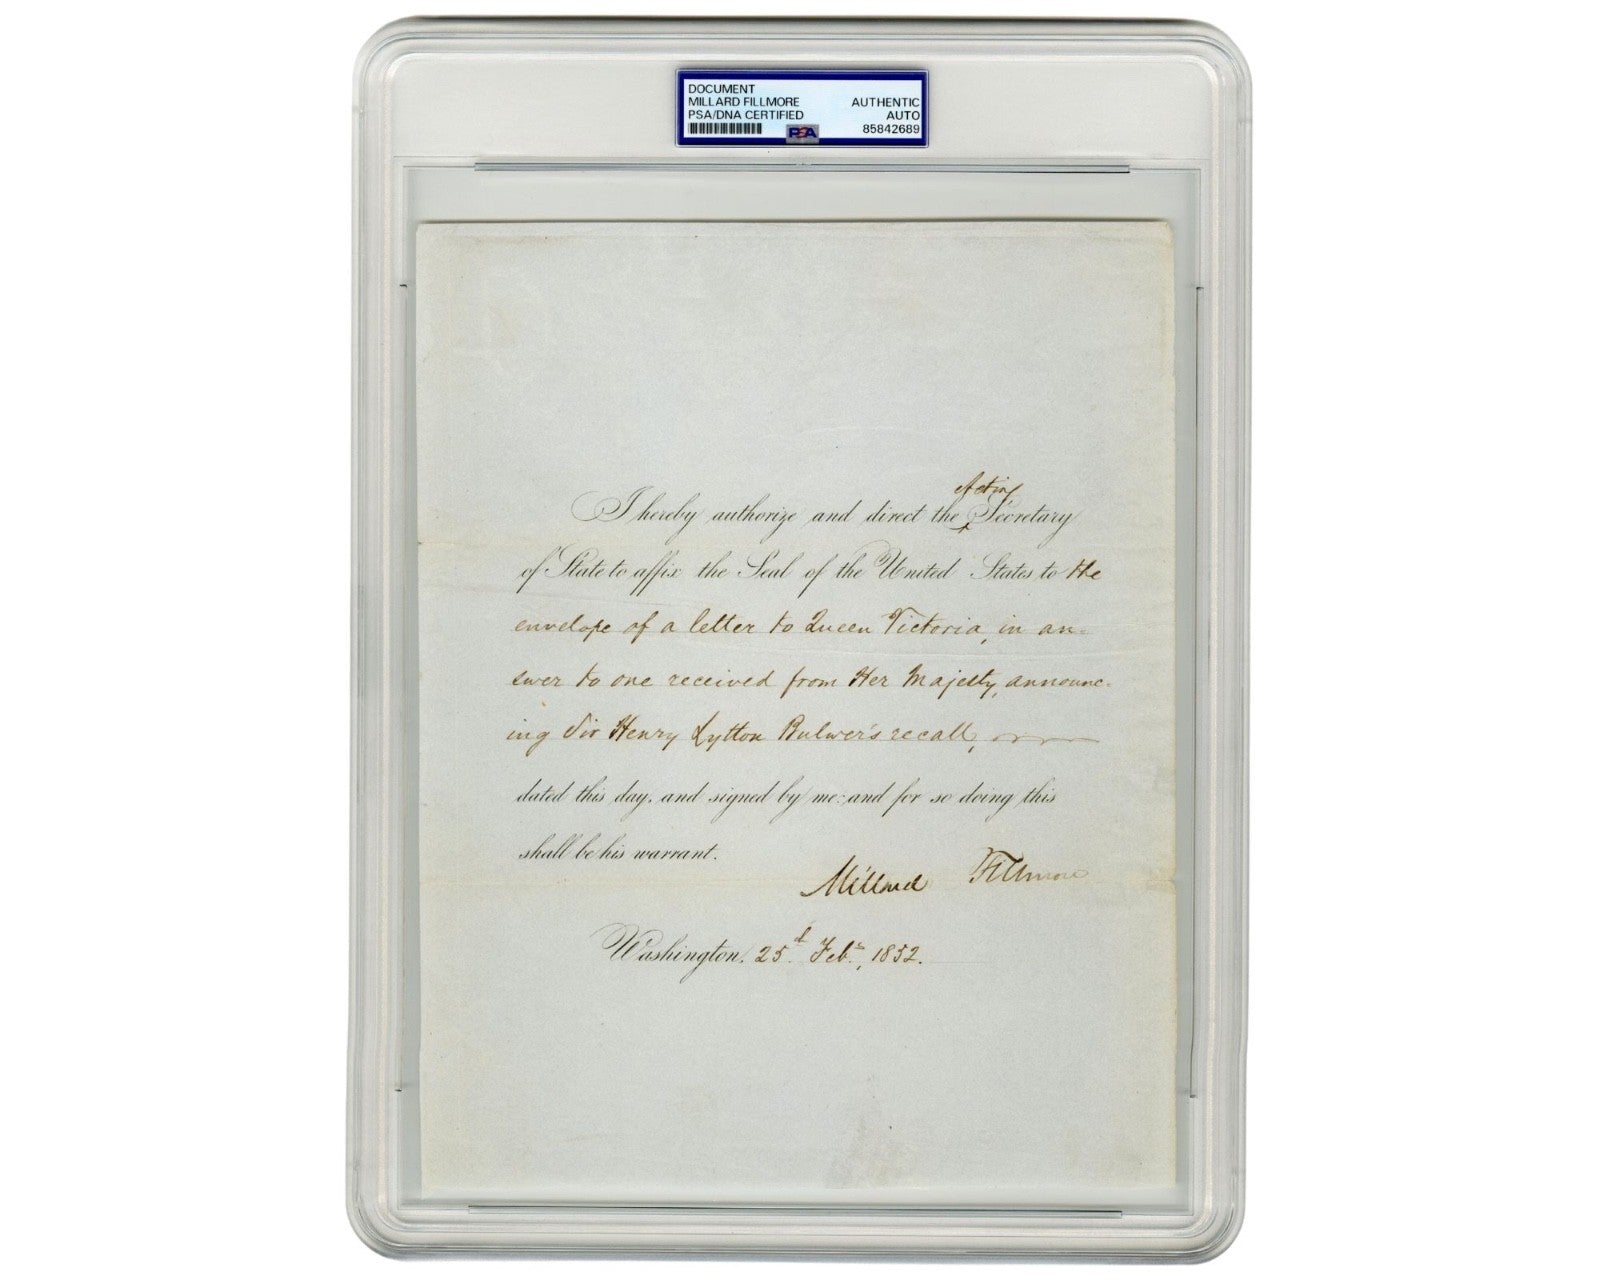 DOCUMENT
MILLARD FILLMORE AUTHENTIC
PSA/DNA CERTIFIED AUTO
PSA 85842689
Acting
I hereby authorize and direct the ‸ Secretary
of State to affix the Seal of the United States to the
envelope of a letter to Queen Victoria, in an-
swer to one received from Her Majesty, announc-
ing Sir Henry Lytton Bulwer's recall,
dated this day, and signed by me: and for so doing this
shall be his warrant.
Millard Fillmore
Washington, 25d. Feb., 1852.